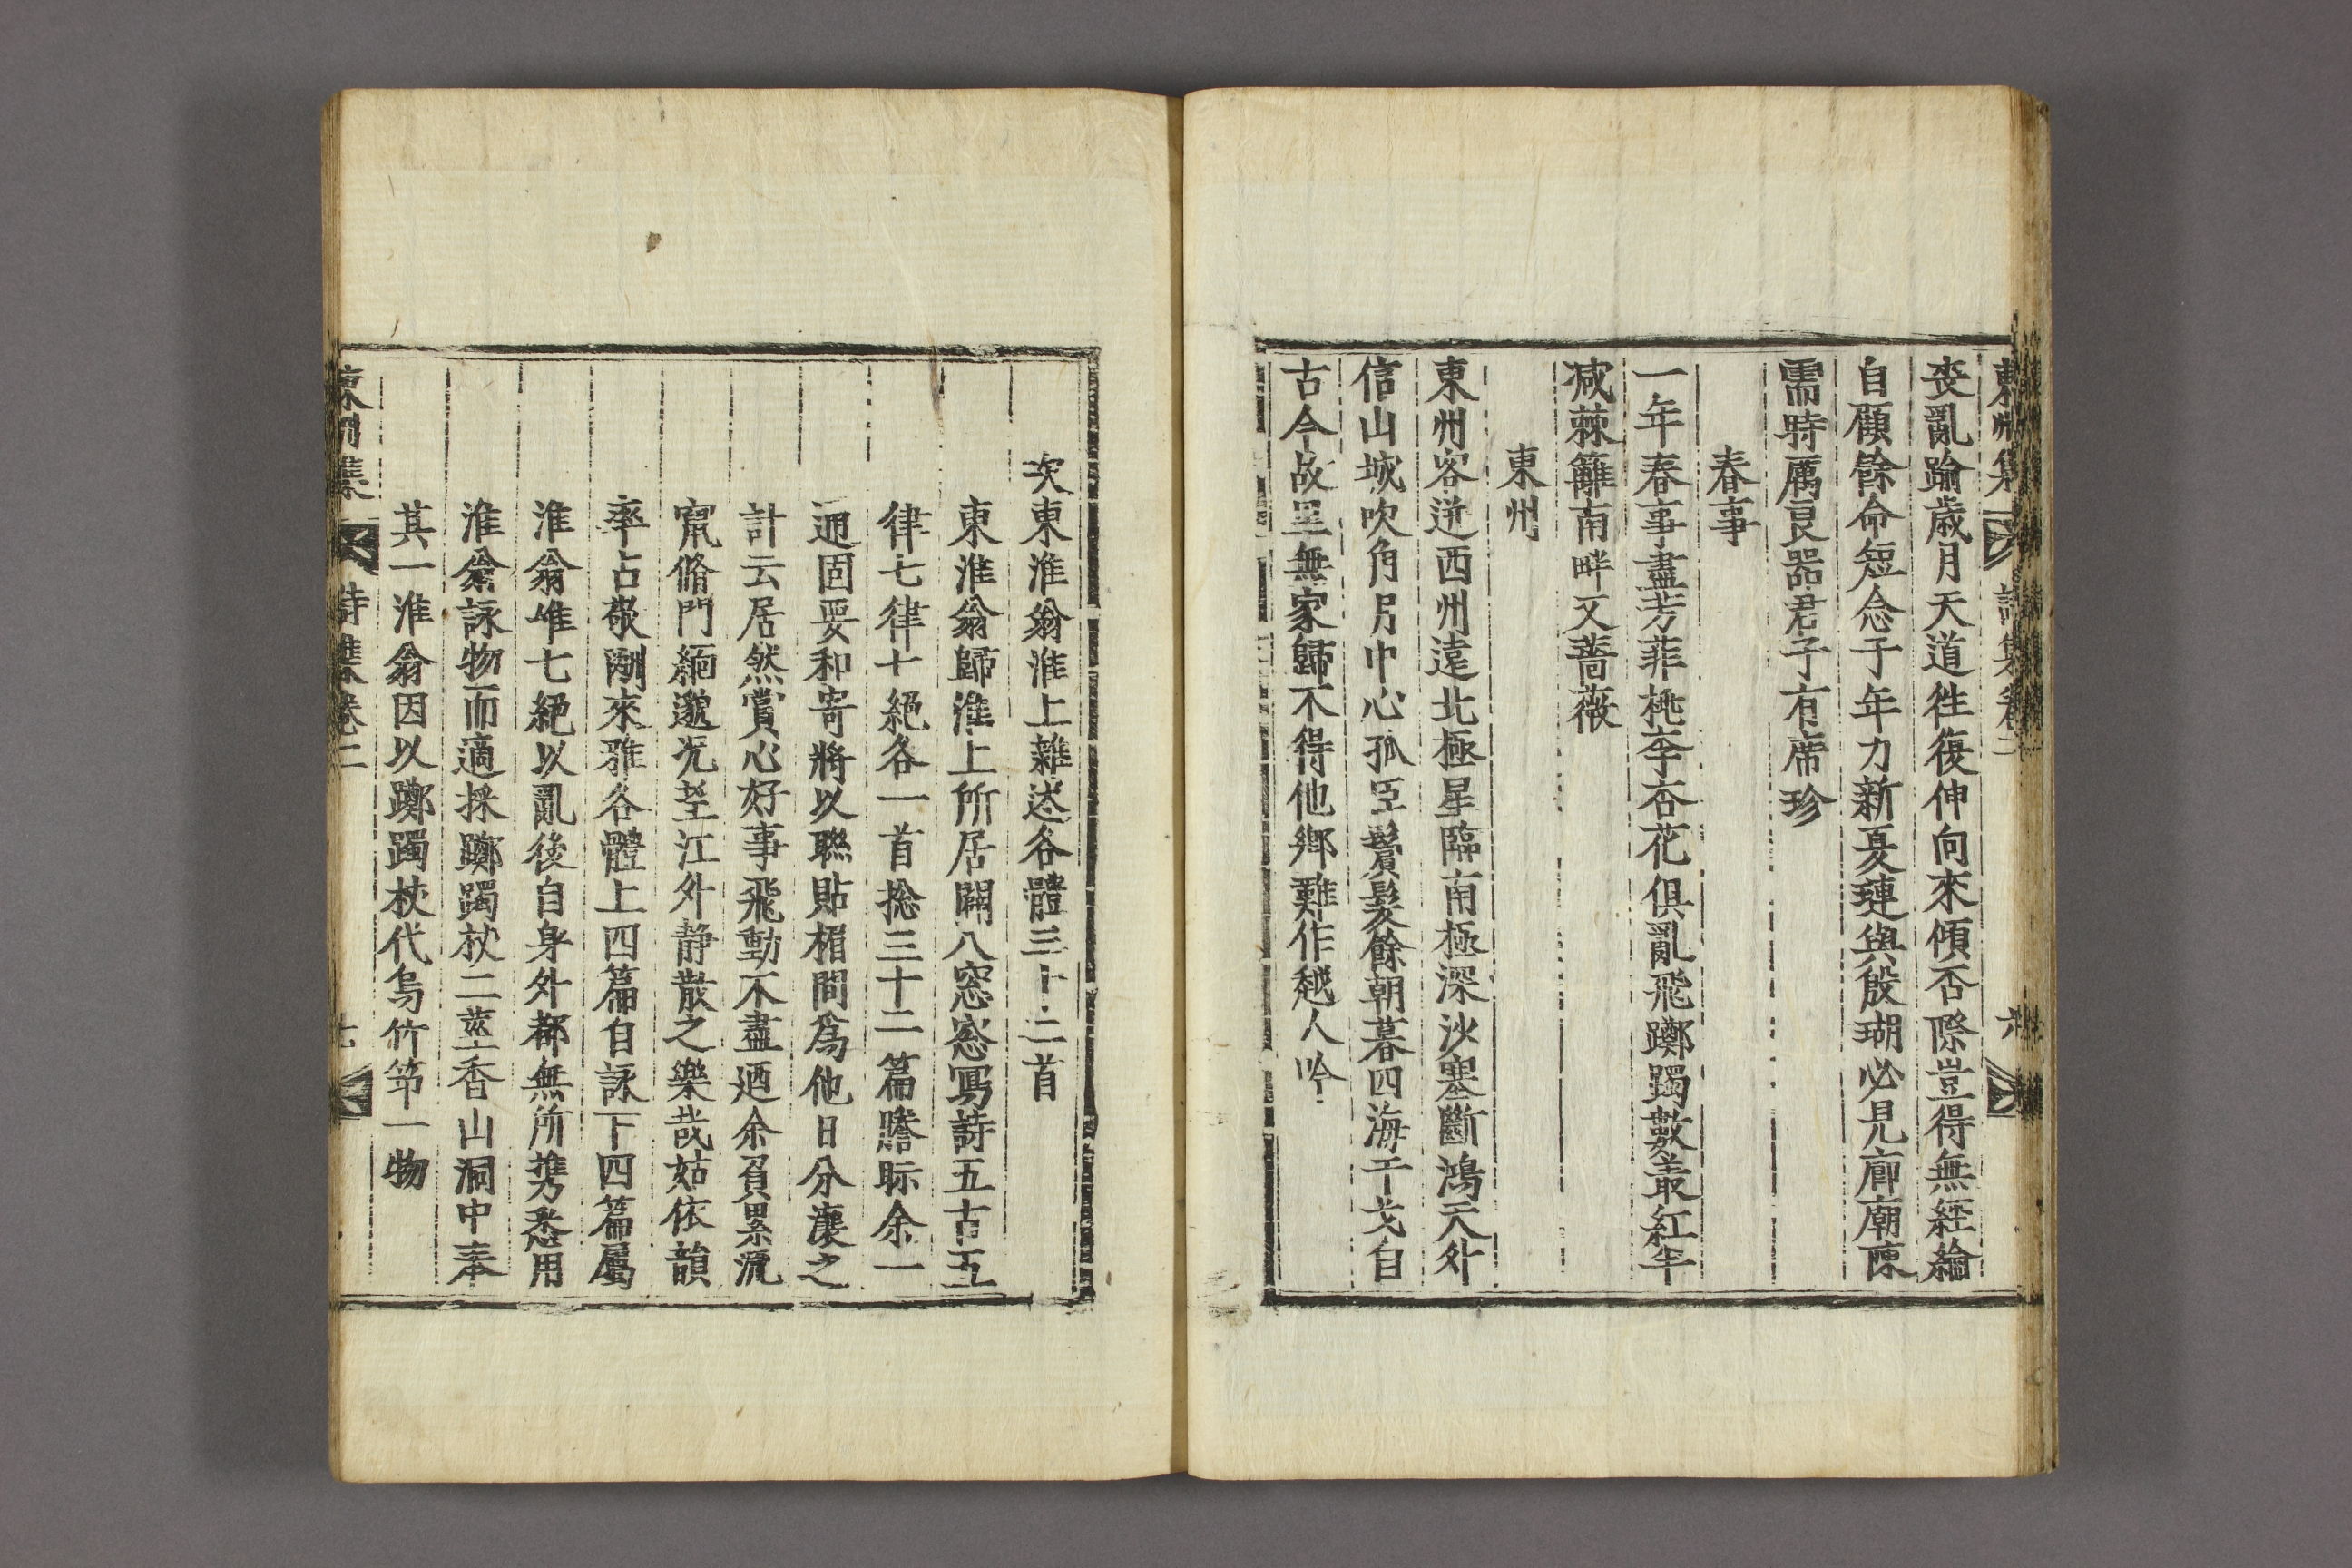 東州集 詩集卷二 六
喪亂踰歲月天道徃復伸向來傾否際豈得無經綸
自顧餘命短念子年力新憂璉與殷瑚必見廊廟陳
需時厲良器君子有席珍
春事
一年春事盡芳菲桃李杏花俱亂飛躑躅數叢紅半
减棘籬南畔又薔薇
東州
東州客迸西州遠北極星臨南極深沙塞斷鴻天外
信山城吹角月中心孤臣鬢髮餘朝暮四海干戈自
古今故里無家歸不得他鄕難作越人吟
次東淮翁淮上雜述各體三十二首
東淮翁歸淮上所居闢八窓窓寫詩五古五
律七律七絕各一首捴三十二篇謄眎余一
通固要和寄將以聯貼楣間爲他日分讓之
計云居然賞心好事飛動不盡廼余負累流
竄脩門緬邈况望江外静散之樂哉姑依韻
率占敬酬來雅各體上四篇自詠下四篇屬
淮翁唯七絕以亂後自身外都無所携悉用
淮翁詠物而適採躑躅杖二莖香山洞中奉
其一淮翁因以躑躅杖代烏竹笻一物
東州集 詩集卷二 七